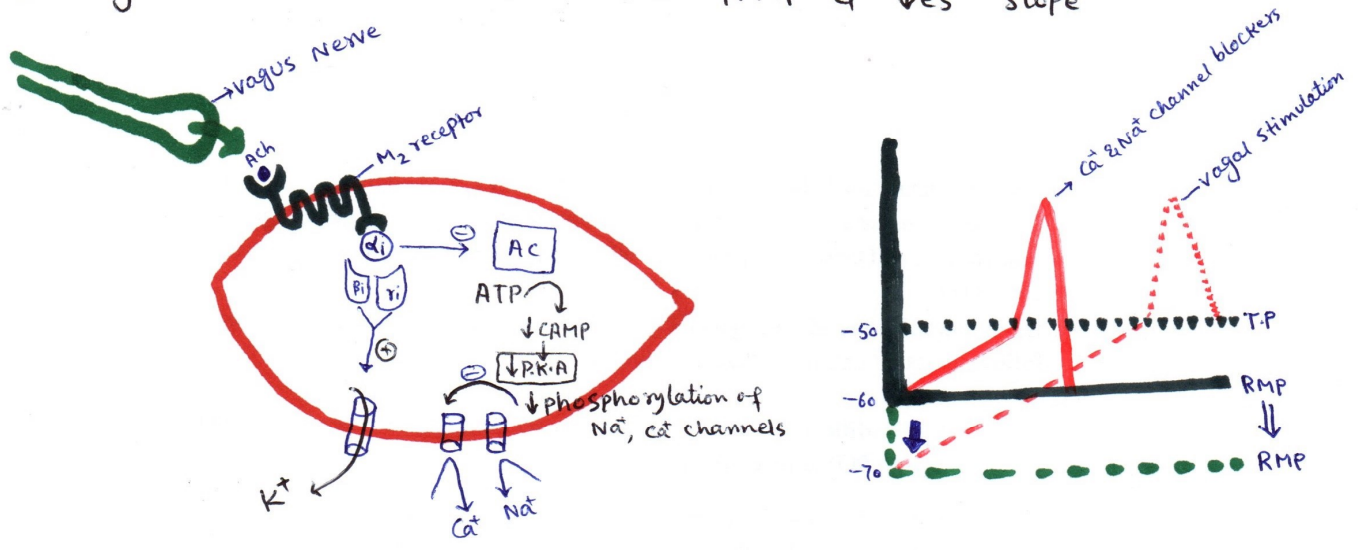 & ↓es slope
→vagus Nerve
Ach
M₂ receptor
αi
⊖
AC
βi
γi
ATP
↓CAMP
⊕
↓P.K.A
⊖
↓phosphorylation of
Na⁺, Ca⁺ channels
K⁺
Ca⁺
Na⁺
→ Ca⁺ & Na⁺ channel blockers
vagal stimulation
-50
T.P
-60
RMP
-70
RMP